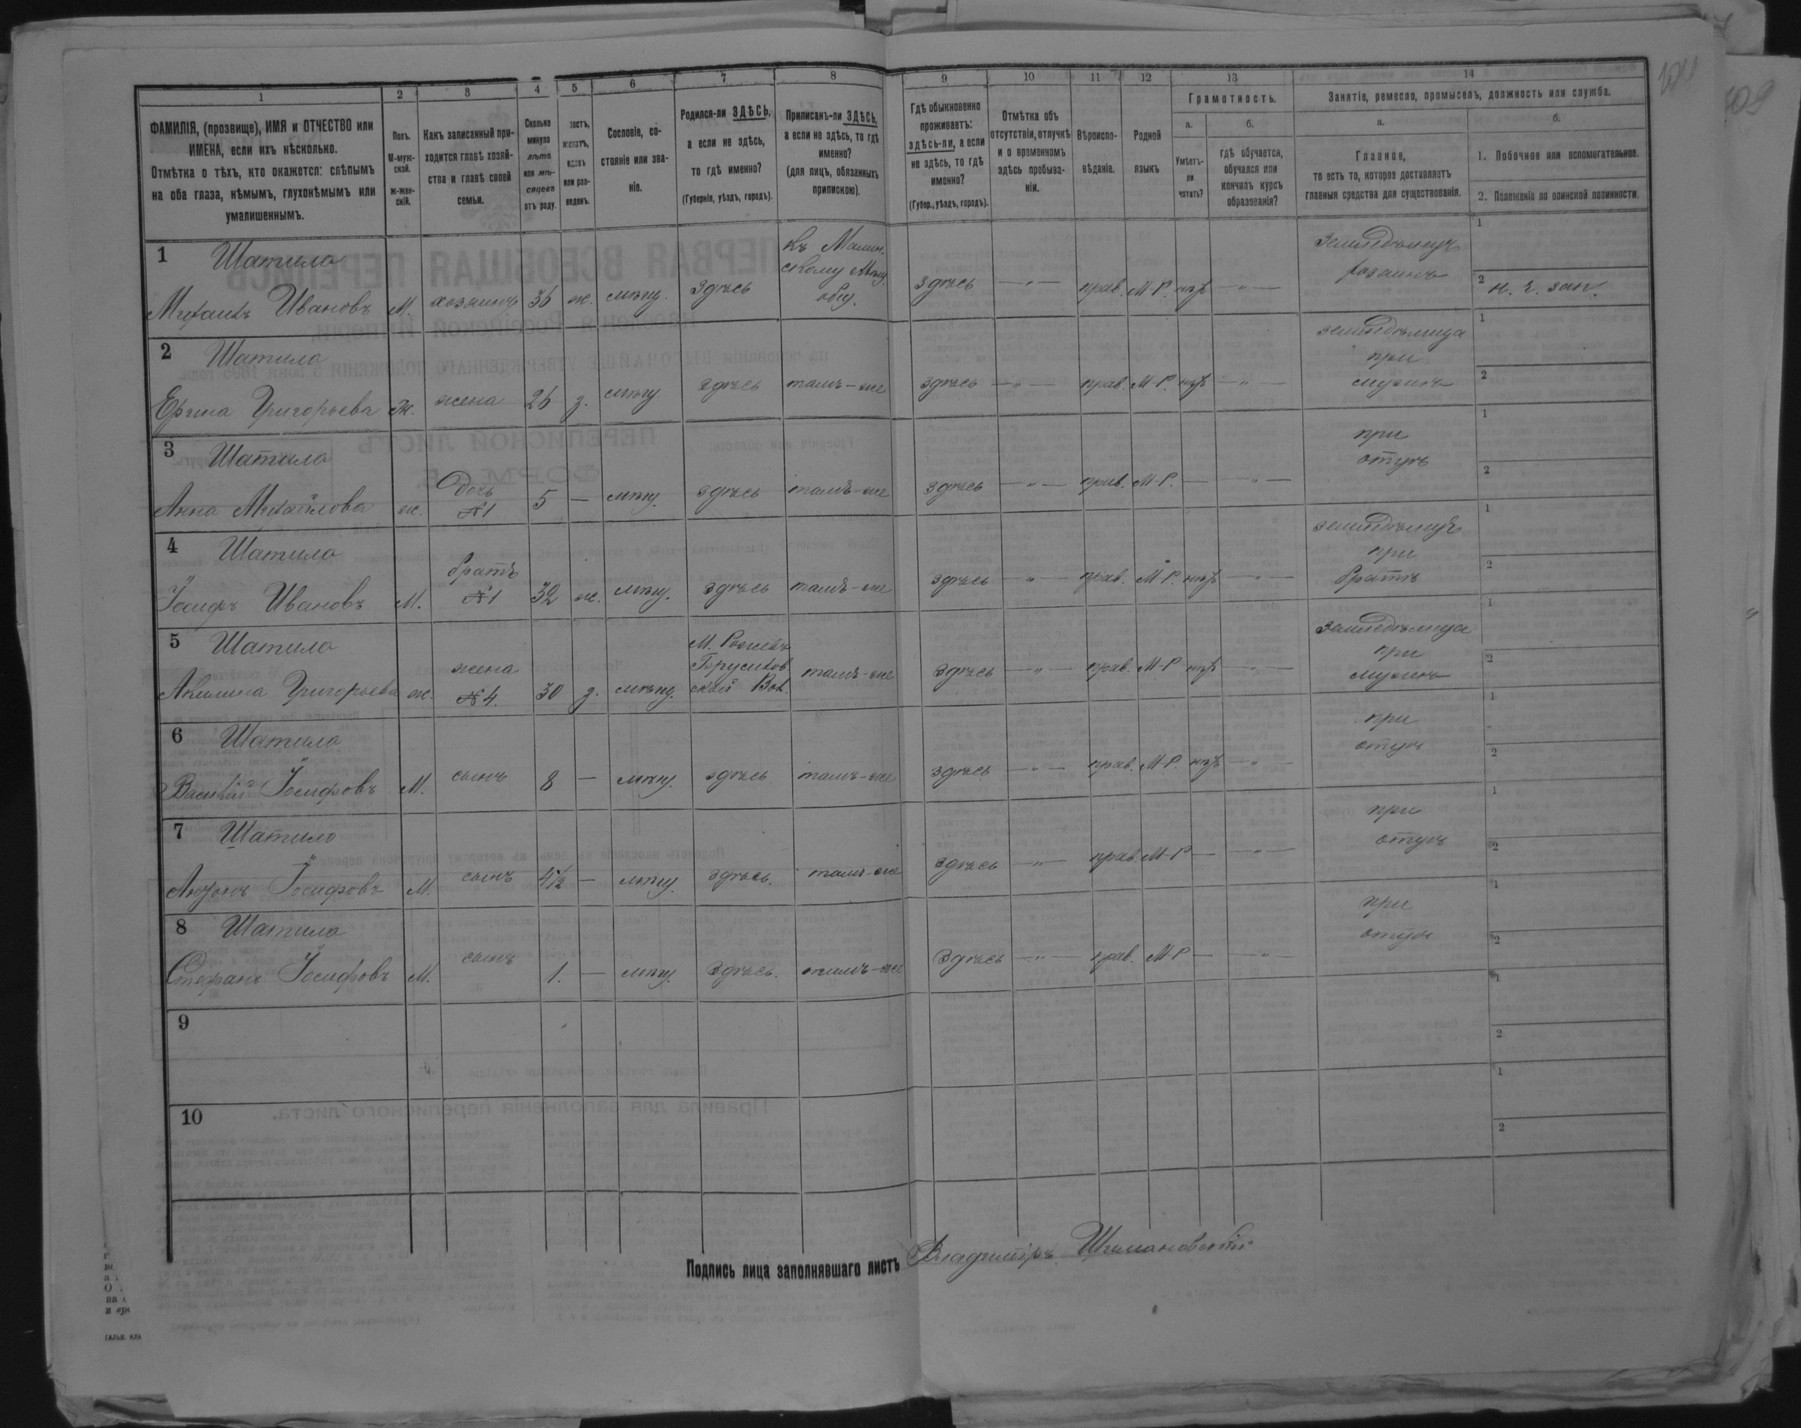 1 2 3 4 5 6 7 8 9 10 11 12 13 14
ФАМИЛІЯ, (прозвище), ИМЯ и ОТЧЕСТВО или
ИМЕНА, если ихъ нѣсколько.
Отмѣтка о тѣхъ, кто окажется: слѣпымъ
на оба глаза, нѣмымъ, глухонѣмымъ или
умалишеннымъ.
Полъ.
М-муж-
ской.
ж-жен-
скій.
Какъ записанный при-
ходится главѣ хозяй-
ства и главѣ своей
семьи.
Сколько
минуло
лѣтъ
или мѣ-
сяцевъ
отъ роду.
Холостъ,
женатъ,
вдовъ
или раз-
веденъ.
Сословіе, со-
стояніе или зва-
ніе.
Родился-ли ЗДѢСЬ,
а если не здѣсь,
то гдѣ именно?
(Губернія, уѣздъ, городъ).
Приписанъ-ли ЗДѢСЬ,
а если не здѣсь, то гдѣ
именно?
(для лицъ, обязанныхъ
припискою).
Гдѣ обыкновенно
проживаетъ:
здѣсь-ли, а если
не здѣсь, то гдѣ
именно?
(Губер., уѣздъ, городъ).
Отмѣтка объ
отсутствіи, отлучкѣ
и о временномъ
здѣсь пребыва-
ніи.
Вѣроиспо-
вѣданіе.
Родной
языкъ
Грамотность.
а.
Умѣетъ-
ли
читать?
б.
гдѣ обучается,
обучался или
кончилъ курсъ
образованія?
Занятіе, ремесло, промыселъ, должность или служба.
а.
Главное,
то есть то, которое доставляетъ
главныя средства для существованія.
б.
1. Побочное или вспомогательное.
2. Положеніе по воинской повинности.
1 Шатило
Михаилъ Ивановъ М. хозяинъ 36 ж. мѣщ. здѣсь
здѣсь — " — прав. М-Р. нѣтъ — " —
хозяинъ
1
2 н. ч. зап.
2 Шатило
Григорьева ж. жена 26 з. мѣщ. здѣсь тамъ-же здѣсь — " — прав. М-Р. нѣтъ — " —
земледѣлица
при
мужѣ
1
2
3 Шатило
Анна Михайлова ж. Дочь
№1 5 — мѣщ. здѣсь тамъ-же здѣсь — " — прав. М-Р. — — " —
при
отцѣ
1
2
4 Шатило
Іосифъ Ивановъ М. братъ
№1 32 ж. мѣщ. здѣсь тамъ-же здѣсь — " — прав. М-Р. нѣтъ — " —
при
братѣ
1
2
5 Шатило
Акилина Григорьева ж. жена
№4. 30 з. мѣщ. тамъ-же здѣсь — " — прав. М-Р нѣтъ — " —
земледѣлица
при
мужѣ
1
2
6 Шатило
Василій Іосифовъ М. сынъ 8 — мѣщ. здѣсь тамъ-же здѣсь — " — прав. М-Р. нѣтъ — " —
при
отцѣ
1
2
7 Шатило
Іосифовъ М. сынъ 4½ — мѣщ. здѣсь. тамъ-же здѣсь — " — прав. М-Р — — " —
при
отцѣ
1
2
8 Шатило
Стефанъ Іосифовъ М. сынъ 1. — мѣщ. здѣсь. тамъ-же здѣсь — " — прав. М-Р — — " —
при
отцѣ
1
2
9
1
2
10
1
2
Подпись лица заполнявшаго листъ Владиміръ